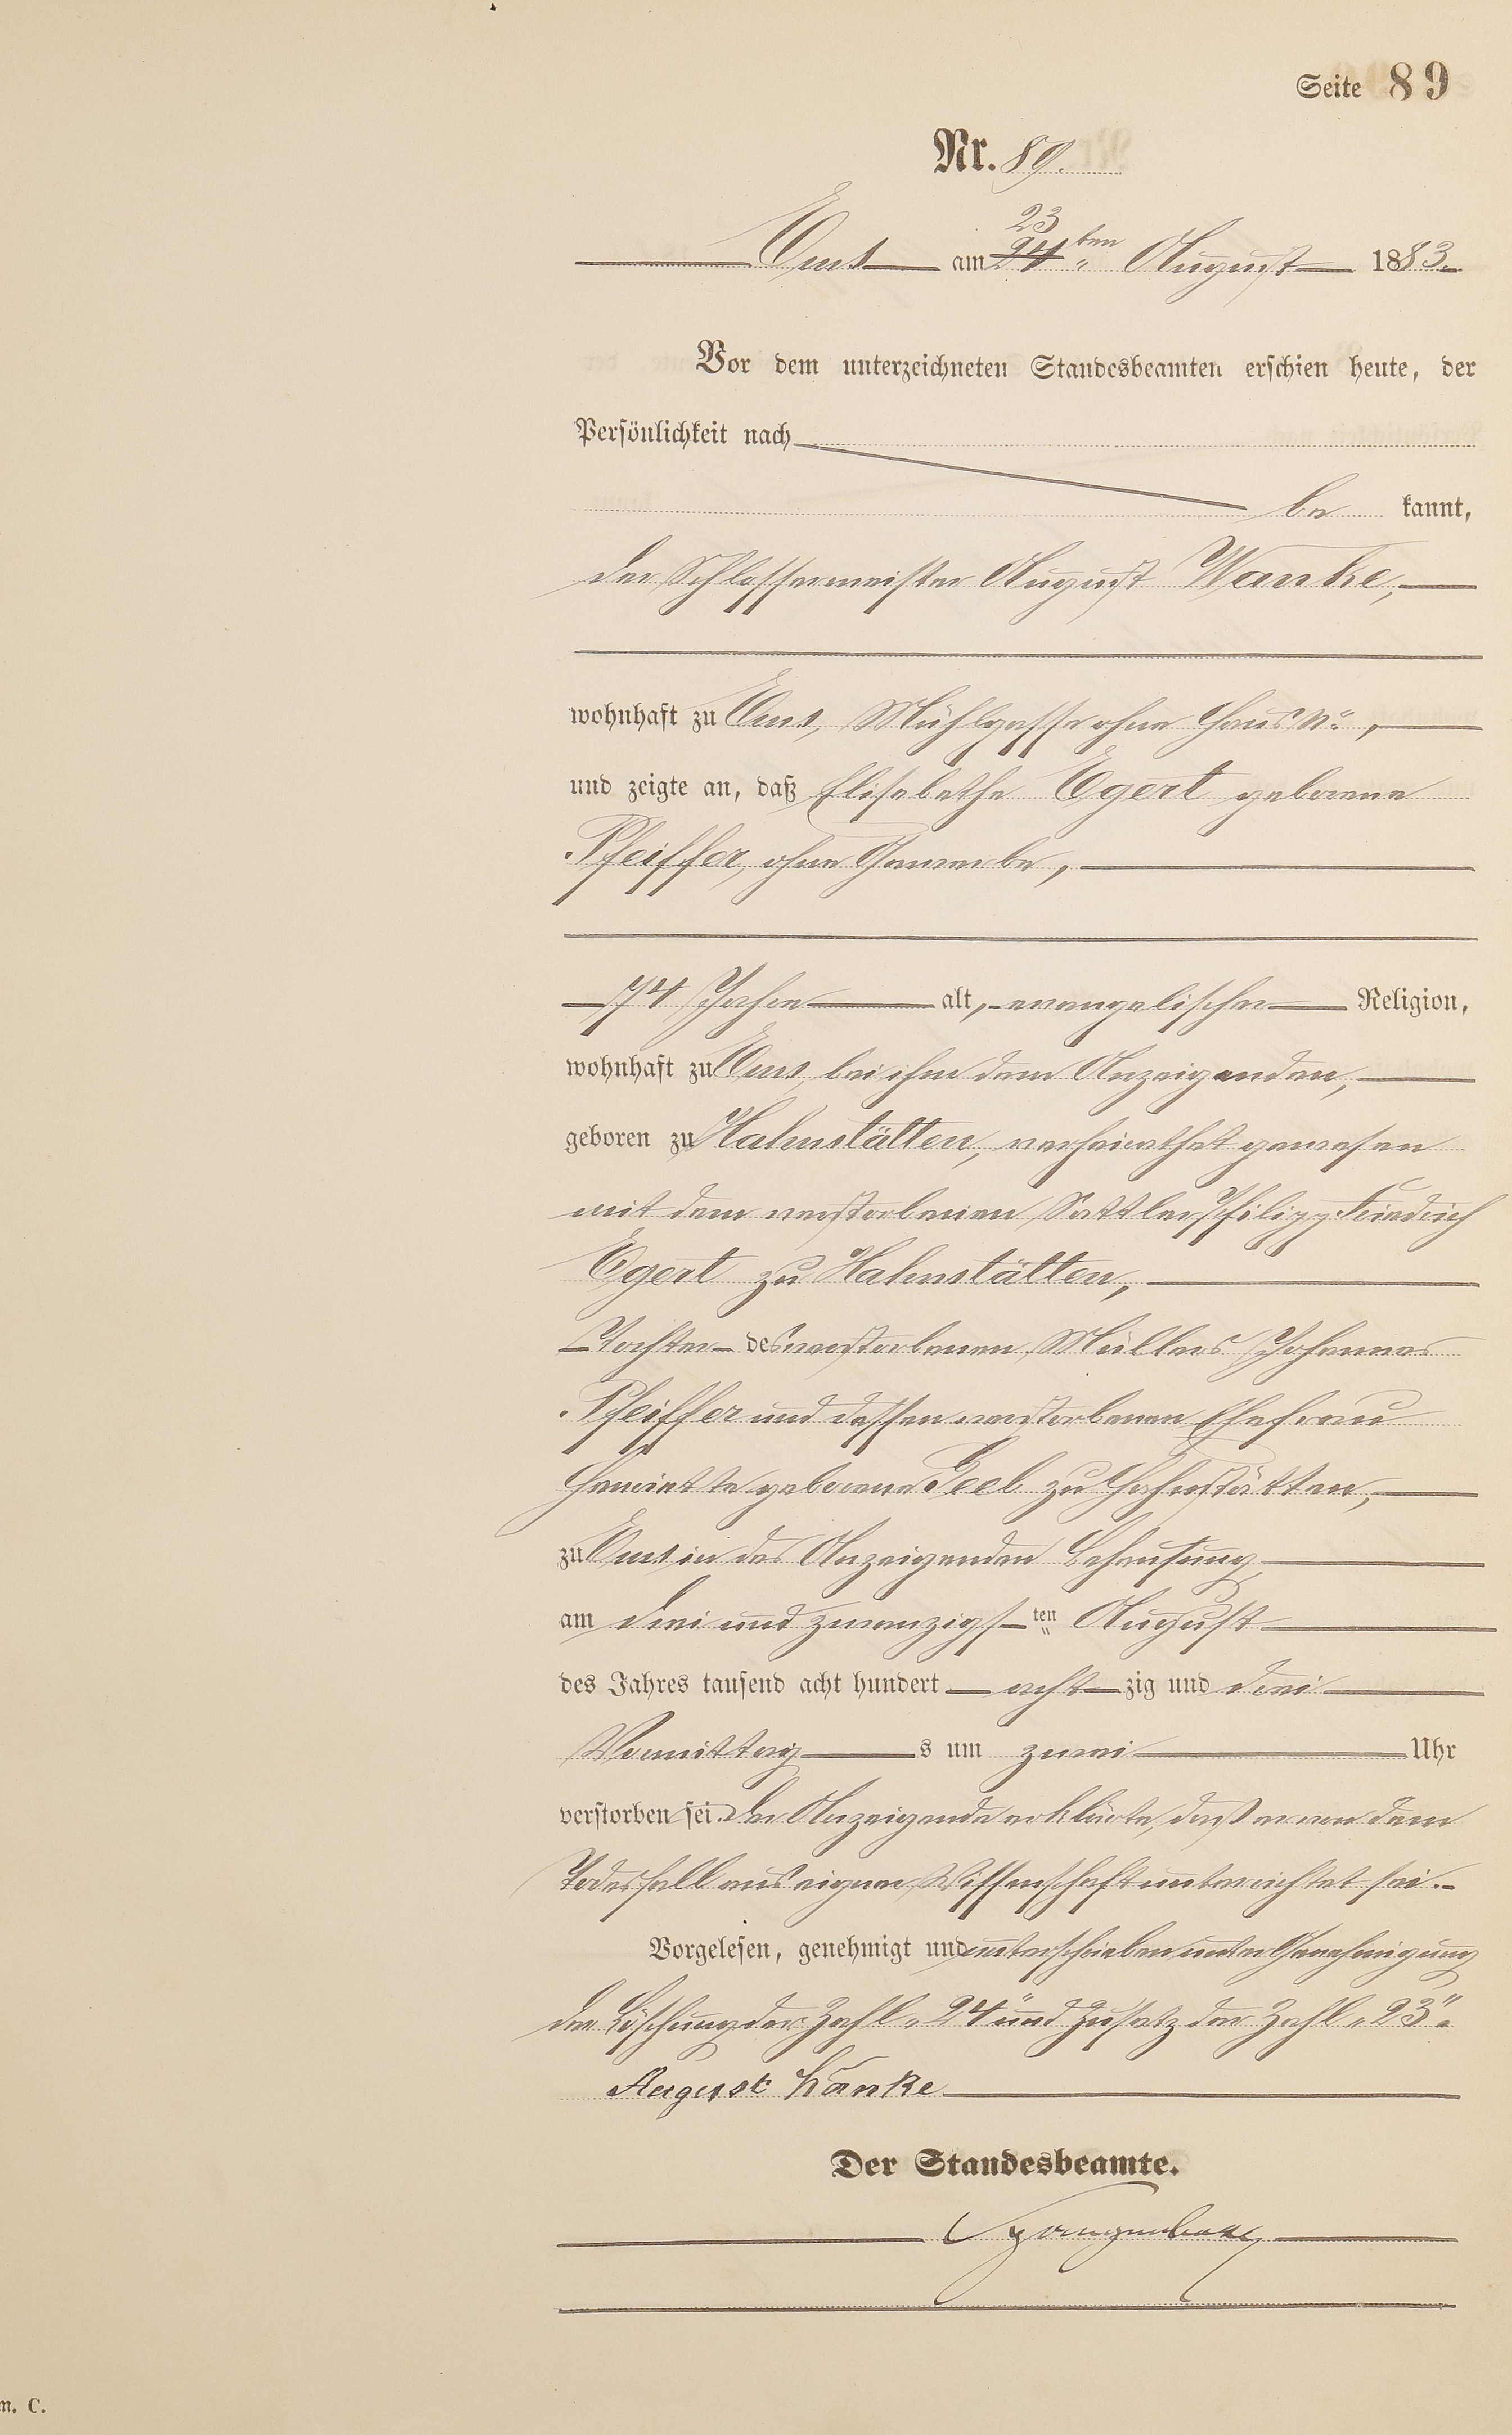 Seite 89
Nr. 89.
23
Ems am 24ten August 1883.
Vor dem unterzeichneten Standesbeamten erschien heute, der
Persönlichkeit nach
be kannt,
der Schlossermeister August Wanke,
wohnhaft zu Ems, Mühlgasse ohne Haus No.,
und zeigte an, daß Elisabethe Egert geborene
Pfeiffer, ohne Gewerbe,
74 Jahre alt, evangelischer Religion,
wohnhaft zu Ems, bei ihm dem Anzeigenden,
geboren zu Hahnstätten, verheirathet gewesen
mit dem verstorbenen Sattler Philipp Friedrich
Egert zu Hahnstätten,
Tochter des verstorbenen Müllers Johannes
Pfeiffer und dessen verstorbenen Ehefrau
Henriette geborene Geel zu Hahnstätten,
zu Ems in des Anzeigenden Behausung
am drei und zwanzigsten August
des Jahres tausend acht hundert acht zig und drei
Vormittag s um zwei Uhr
verstorben sei. Der Anzeigende erklärte, daß er von dem
Todesfall aus eigener Wissenschaft unterrichtet sei.
Vorgelesen, genehmigt und unterschrieben unter Genehmigung
der Löschung der Zahl „24" und Zusatz der Zahl „23".
August Wanke
Der Standesbeamte.
m. C.